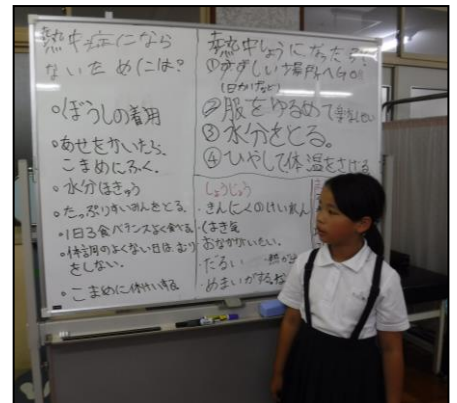 熱中症になら
ないためには?
○ぼうしの着用
○あせをかいたら、
こまめにふく。
○水分ほきゅう
○たっぷりすいみんをとる。
・1日3食バランスよく食べる
○体調のよくない日は、むり
をしない。
○こまめに休けいする。
熱中しょうになったら
①すずしい場所へGO!!
(日かげなど)
②服をゆるめて楽な
③水分をとる。
④ひやして体温をさげる
しょうじょう
・きんにくのけいれん
・はき気
おなかがいたい。
・だるい
・めまいがする